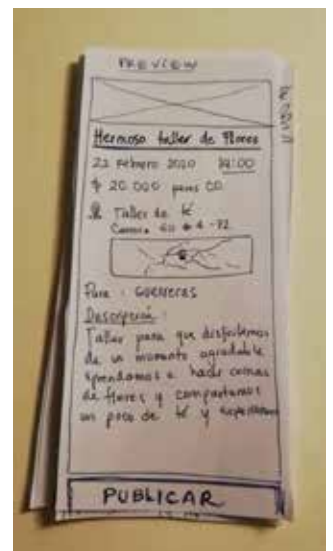 PREVIEW
Hermoso taller de Flores
22 Febrero 2020 14:00
$ 20.000 pesos CO.
Taller de té
Carrera 60 # 4 - 72
Para : Guerreras
Descripción :
Taller para que disfrutemos
de un momento agradable
aprendamos a hacer coronas
de flores y compartamos
un poco de té y
PUBLICAR